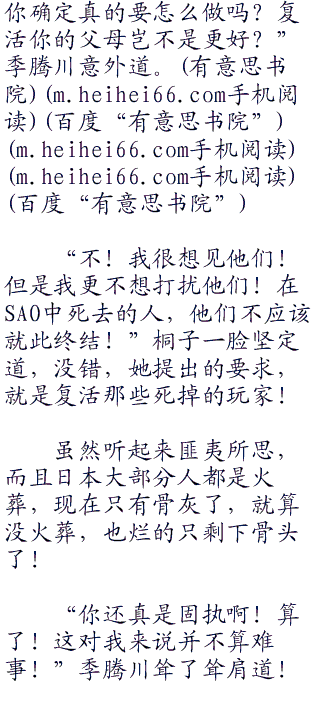 你确定真的要怎么做吗？复
活你的父母岂不是更好？”
季腾川意外道。(有意思书
院)(m.heihei66.com手机阅
读)(百度“有意思书院”)
(m.heihei66.com手机阅读)
(m.heihei66.com手机阅读)
(百度“有意思书院”)
“不！我很想见他们！
但是我更不想打扰他们！在
SAO中死去的人，他们不应该
就此终结！”桐子一脸坚定
道，没错，她提出的要求，
就是复活那些死掉的玩家！
虽然听起来匪夷所思，
而且日本大部分人都是火
葬，现在只有骨灰了，就算
没火葬，也烂的只剩下骨头
了！
“你还真是固执啊！算
了！这对我来说并不算难
事！”季腾川耸了耸肩道！